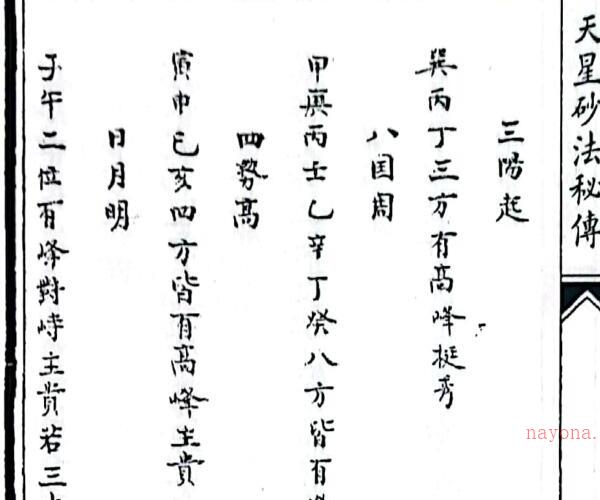 天星砂法秘傳
三陽起
巽丙丁三方有高峰挺秀
八国周
甲庚丙壬乙辛丁癸八方皆有
四勢高
寅申巳亥四方皆有高峰主貴
日月明
子午二位有峰對峙主貴若三
nayona.